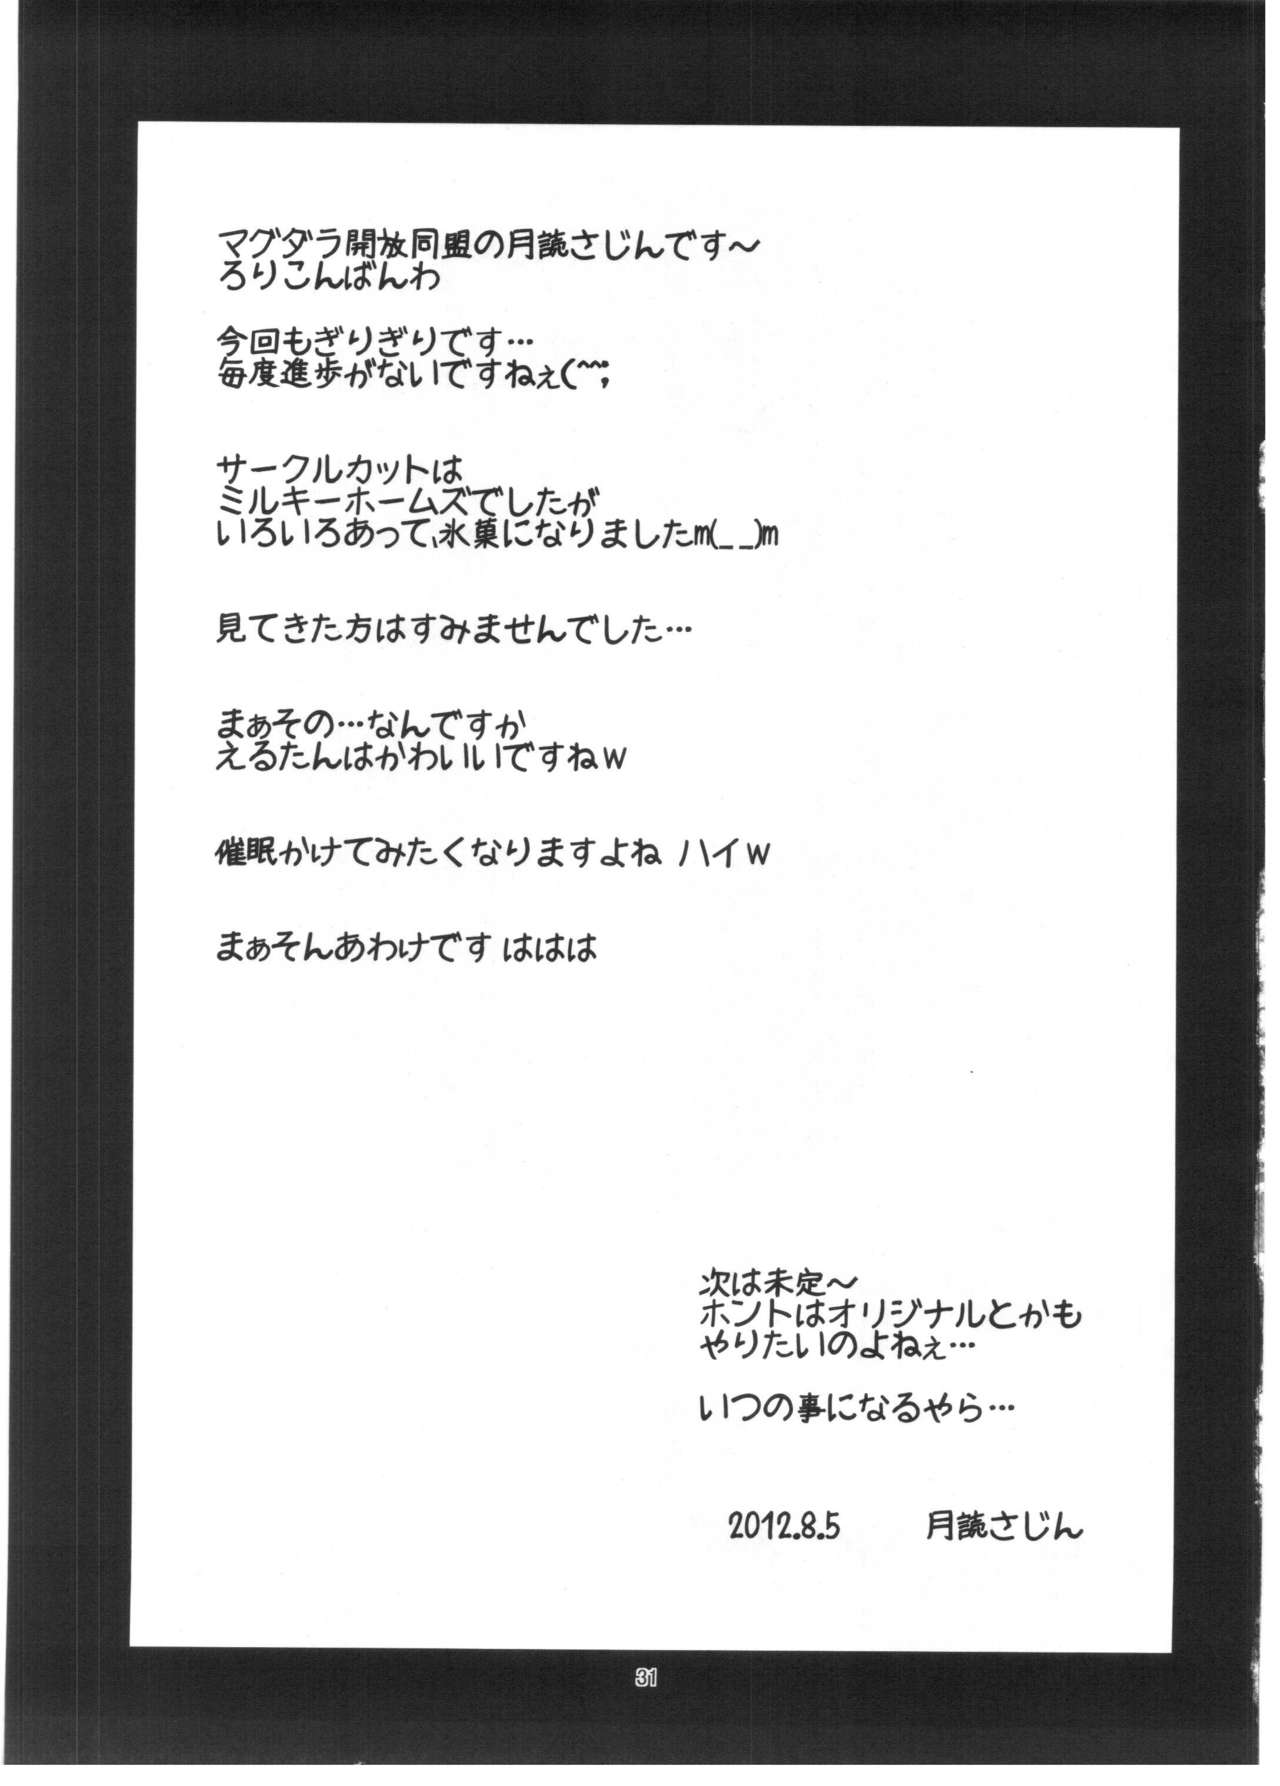 マグダラ開放同盟の月読さじんです～
ろりこんばんわ
今回もぎりぎりです…
毎度進歩がないですねぇ(^^;
サークルカットは
ミルキーホームズでしたが
いろいろあって、氷菓になりましたm(_ _)m
見てきた方はすみませんでした…
まぁその…なんですか
えるたんはかわいいですねｗ
催眠かけてみたくなりますよね ハイｗ
まぁそんあわけです ははは
次は未定～
ホントはオリジナルとかも
やりたいのよねぇ…
いつの事になるやら…
2012.8.5 月読さじん
31